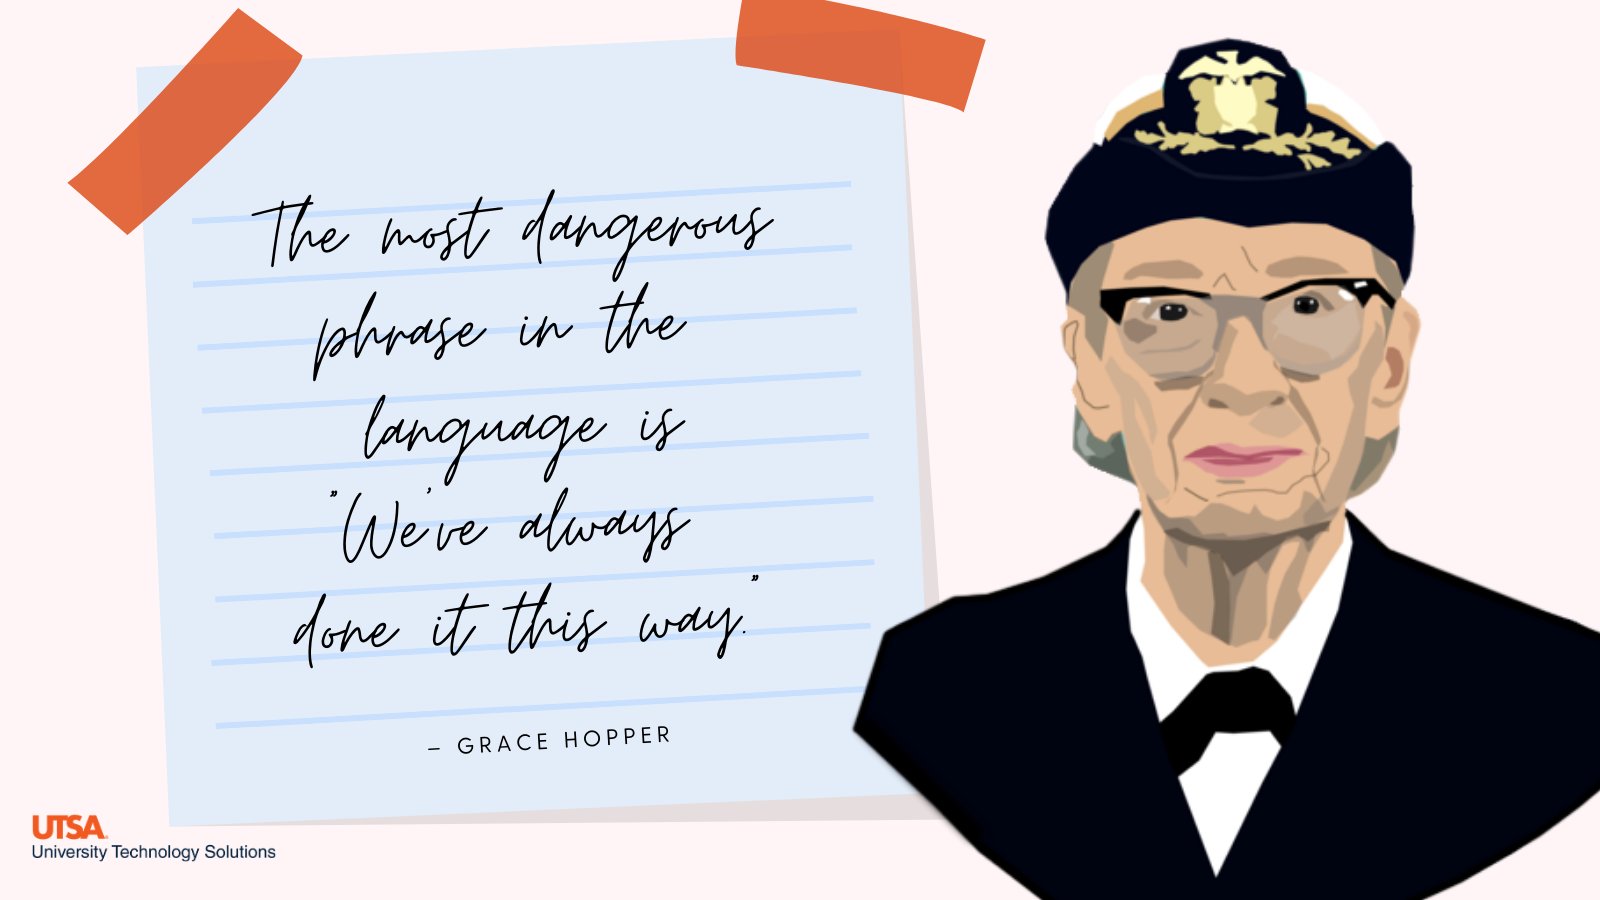 The most dangerous
phrase in the
language is
"We've always
done it this way."
– GRACE HOPPER
UTSA
University Technology Solutions